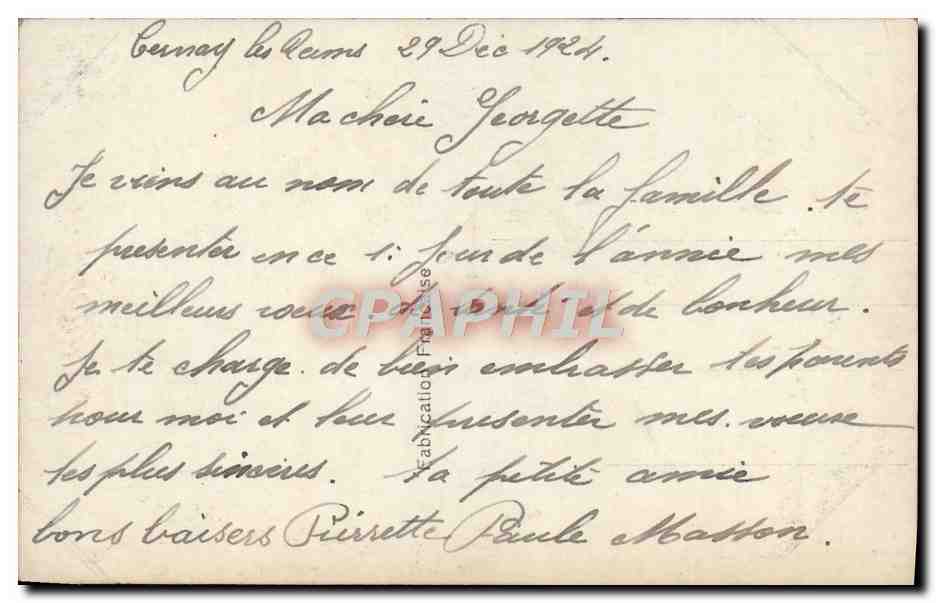 Cernay les Reims 29 Déc 1924.
Ma chère Georgette
Je viens au nom de toute la famille te
presenter en ce 1: jour de l'année mes
meilleurs voeux de santé et de bonheur.
Je te charge de bien embrasser tes parents
pour moi et leur presenter mes voeux
les plus sincères. ta petite amie
bons baisers Pierrette Paule Masson.
Fabrication Française
CPAPHIL